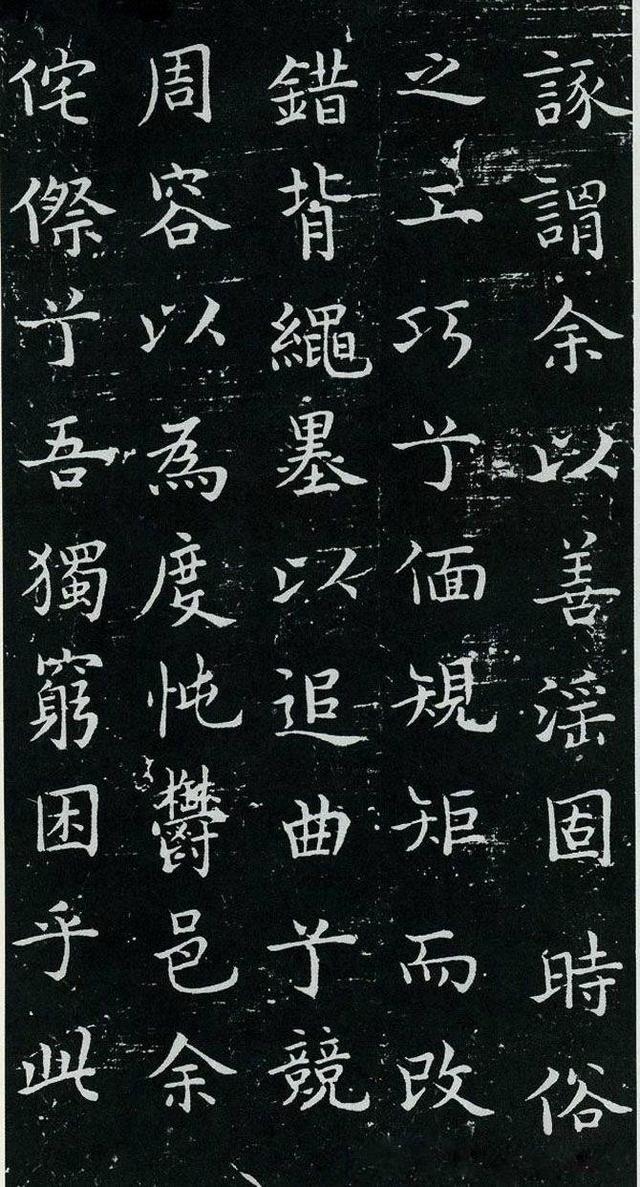 諑謂余以善淫固時俗
之工巧兮偭規矩而改
錯背繩墨以追曲兮競
周容以為度忳鬱邑余
侘傺兮吾獨窮困乎此